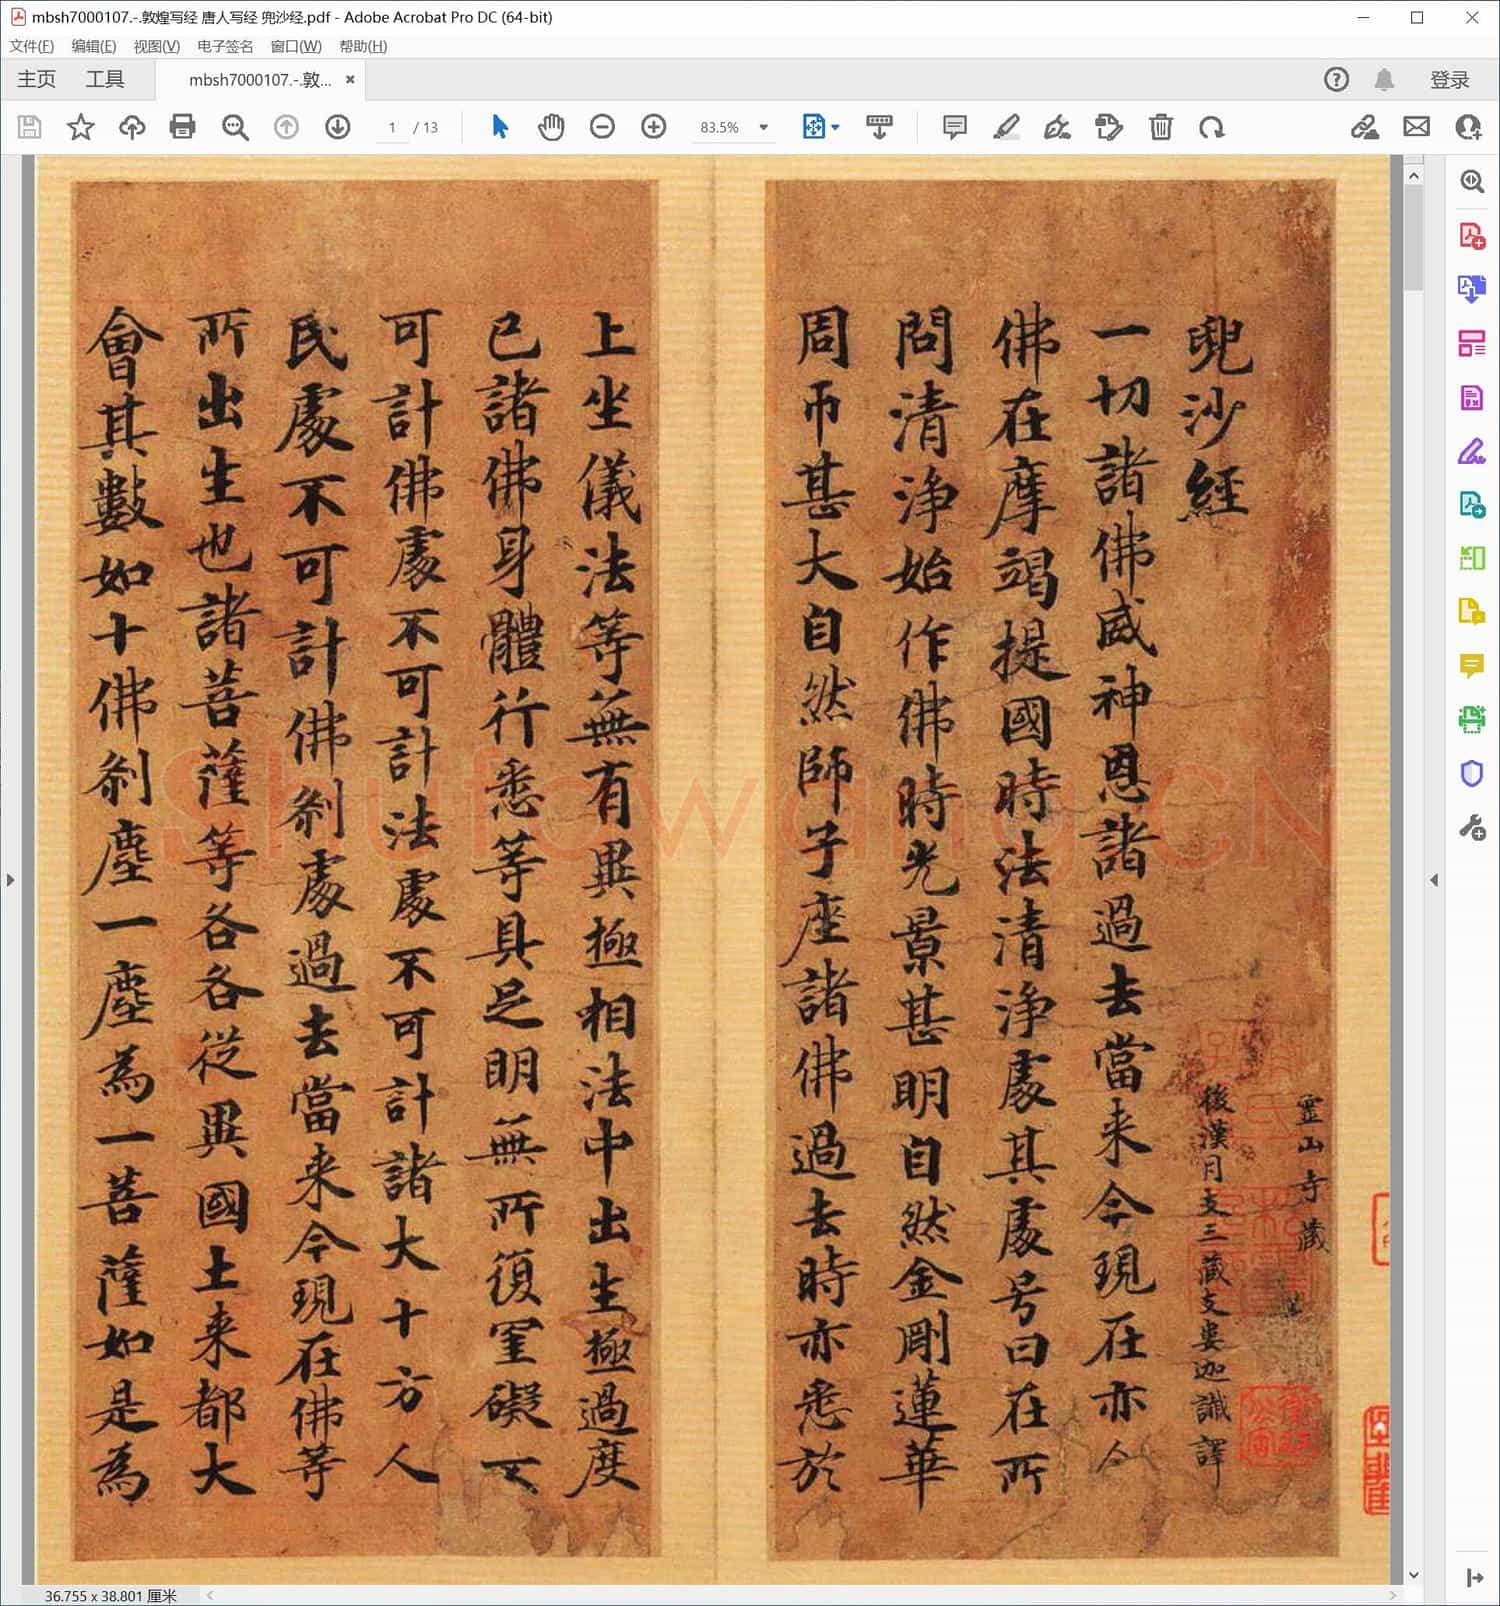 mbsh7000107.-.敦煌写经 唐人写经 兜沙经.pdf - Adobe Acrobat Pro DC (64-bit)
文件(F) 编辑(E) 视图(V) 电子签名 窗口(W) 帮助(H)
主页 工具 mbsh7000107.-.敦... 登录
1 / 13 83.5%
靈山寺藏
兜沙經
後漢月支三藏支婁迦讖譯
一切諸佛威神恩諸過去當来今現在亦今
佛在摩竭提國時法清淨處其處号曰在所
問清淨始作佛時光景甚明自然金剛蓮華
周帀甚大自然師子座諸佛過去時亦悉於
上坐儀法等無有異極相法中出生極過度
已諸佛身體行悉等具足明無所復罣礙不
可計佛處不可計法處不可計諸大十方人
民處不可計佛剎處過去當来今現在佛等
所出生也諸菩薩等各各従異國土来都大
會其數如十佛剎塵一塵為一菩薩如是為
Shufawang.CN
36.755 x 38.801 厘米